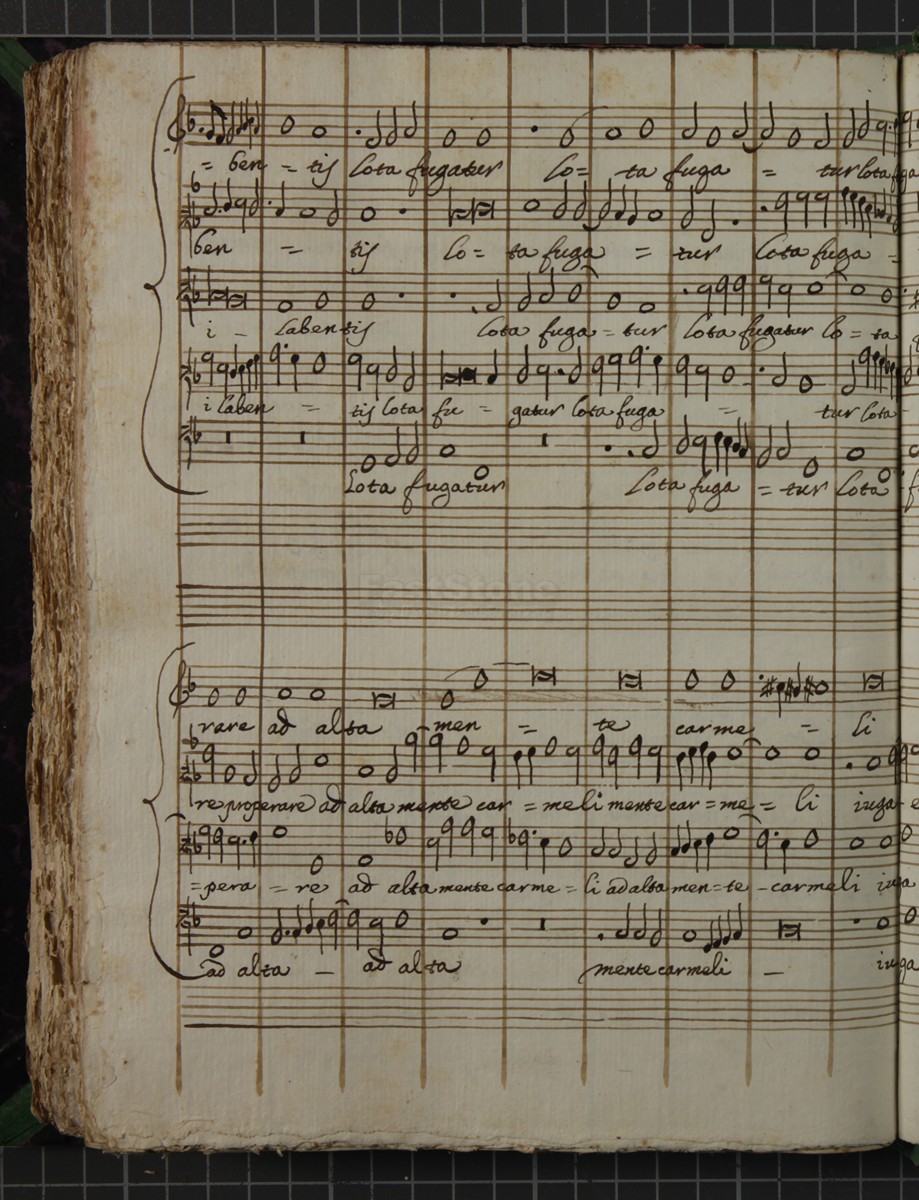 = ben = tis lota fugatur lo= ta fuga = tur lota fuga
ben = tis lo= ta fuga = tur lota fuga =
i - labentis lota fuga = tur lota fugatur lo = ta
i laben = tis lota fu = gatur lota fuga = tur lota -
lota fugatur lota fuga = tur lota f
FastStone
rare ad alta men = te carme = li
re properare ad alta mente car = meli mente car = me = li iuga e
= pera = re ad alta mente carme = li ad alta men = te - carmeli iuga
ad alta - ad alta mente carmeli - iuga